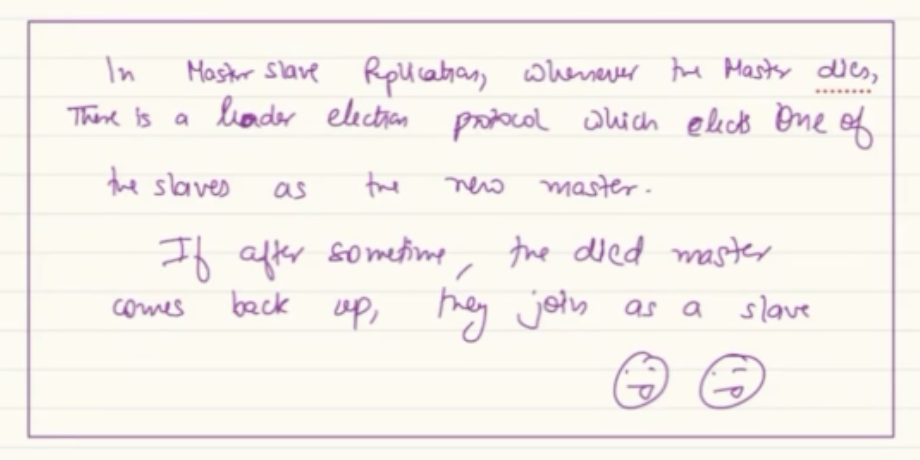 In Master slave Replication, whenever the Master dies,
There is a leader election protocol which elects One of
the slaves as the new master.
If after sometime, the died master
comes back up, they join as a slave